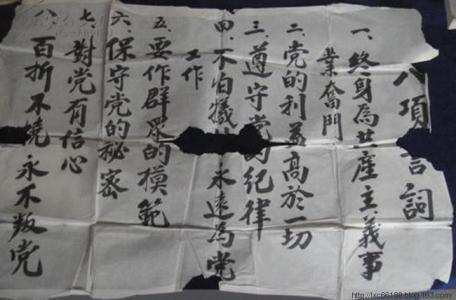 八項誓詞
一、終身為共產主義事
業奮鬥
二、党的利益高於一切
三、遵守党的紀律
四、不怕犧牲永遠為党
工作
五、要作群眾的模範
六、保守党的秘密
七、對党有信心
八、百折不撓永不叛党
http://lxc66188.blog.163.com/